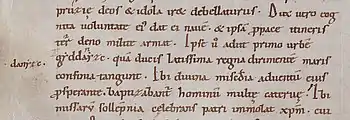 pruzie deos & idola iræ debellaturus. Dux vero cog
nita voluntate ei' dat ei naue & ip̄s p̱pace itineris
ter deno milite armat. Ipse u adiit primo urbē
gẏddanẏzc. quā ducis latissima regna dirimente maris
danzc.
confinia tangunt. Ibi diuina mis̄c̄dia aduentū eius
ꝓsperante. baptizabant hominū multe caterue. Ibi
missarū sollemnia celebrans patri immolat xp̄m. cui